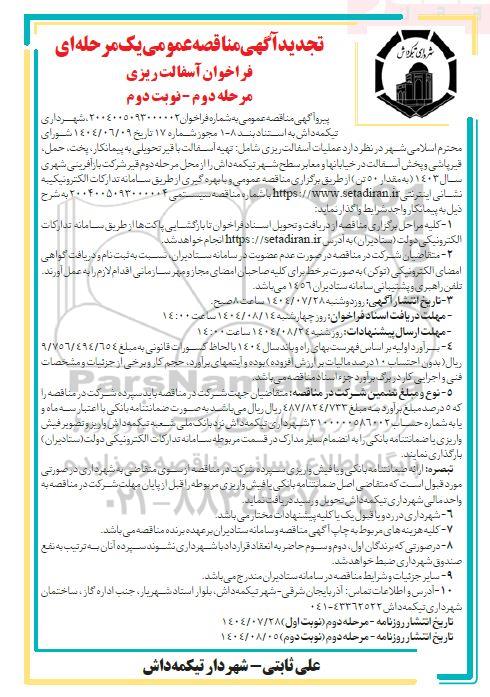 تجدید آگهی مناقصه عمومی یک مرحله‌ای
فراخوان آسفالت ریزی
مرحله دوم - نوبت دوم
شهرداری تیکمه‌داش
پیرو آگهی مناقصه عمومی به شماره فراخوان ۲۰۰۴۰۰۵۰۹۳۰۰۰۰۰۲، شهرداری
تیکمه‌داش به استناد بند ۸-۱ مجوز شماره ۱۷ تاریخ ۱۴۰۴/۰۶/۰۹ شورای
محترم اسلامی شهر در نظر دارد عملیات آسفالت ریزی شامل: تهیه آسفالت با قیر تحویلی به پیمانکار، پخت، حمل،
قیرپاشی و پخش آسفالت در خیابانها و معابر سطح شهر تیکمه‌داش را از محل مرحله دوم قیر شرکت بازآفرینی شهری
سال ۱۴۰۳ (به مقدار ۵۰ تن) از طریق برگزاری مناقصه عمومی و با بهره گیری از طریق سامانه تدارکات الکترونیکی به
نشانی اینترنتی https://www.setadiran.ir با شماره مناقصه سیستمی ۲۰۰۴۰۰۵۰۹۳۰۰۰۰۰۴ به شرح
ذیل به پیمانکار واجد شرایط واگذار نماید:
۱- کلیه مراحل برگزاری مناقصه از دریافت و تحویل اسناد فراخوان تا بازگشایی پاکت‌ها از طریق سامانه تدارکات
الکترونیکی دولت (ستاد ایران) به آدرس https://setadiran.ir انجام خواهد شد.
۲- متقاضیان شرکت در مناقصه در صورت عدم عضویت در سامانه ستاد ایران، نسبت به ثبت نام و دریافت گواهی
امضای الکترونیکی (توکن) به صورت برخط برای کلیه صاحبان امضای مجاز و مهر سازمانی اقدام لازم را به عمل آورند.
تلفن راهبری و پشتیبانی سامانه ستاد ایران ۱۴۵۶ می‌باشد.
۳- تاریخ انتشار آگهی: روز دوشنبه ۱۴۰۴/۰۷/۲۸ ساعت ۸ صبح.
- مهلت دریافت اسناد فراخوان: روز چهارشنبه ۱۴۰۴/۰۸/۱۴ ساعت ۱۴:۰۰
- مهلت ارسال پیشنهادات: روز شنبه ۱۴۰۴/۰۸/۲۴ ساعت ۱۴:۰۰
۴- برآورد اولیه بر اساس فهرست بهای راه و باند سال ۱۴۰۴ با لحاظ کسورات قانونی به مبلغ ۹/۷۵۶/۴۹۴/۶۵۴
ریال (بدون احتساب ۱۰ درصد مالیات بر ارزش افزوده) بوده و آیتمهای برآورد، حجم کار و برخی از جزئیات و مشخصات
فنی و اجرایی کار در برگ برآورد جزء اسناد مناقصه می‌باشد.
۵- نوع و مبلغ تضمین شرکت در مناقصه: متقاضیان جهت شرکت در مناقصه باید سپرده شرکت در مناقصه را
که ۵ درصد مبلغ برآورد به مبلغ ۴۸۷/۸۲۴/۷۳۳ ریال می‌باشد به صورت ضمانتنامه بانکی با اعتبار سه ماه و
یا به شماره حساب ۳۱۰۰۰۰۰۵۸۶۰۰۲ شهرداری تیکمه‌داش نزد بانک ملی شعبه تیکمه‌داش واریز و تصویر فیش
واریزی یا ضمانتنامه بانکی را به انضمام سایر مدارک در قسمت مربوطه سامانه تدارکات الکترونیکی دولت (ستاد ایران)
بارگذاری نمایند.
تبصره: ارائه ضمانتنامه بانکی و یا فیش واریزی سپرده شرکت در مناقصه از سوی متقاضی به شهرداری در صورتی
مورد قبول است که متقاضی اصل ضمانتنامه بانکی یا فیش واریزی مربوطه را قبل از پایان مهلت شرکت در مناقصه به
واحد مالی شهرداری تیکمه‌داش تحویل و رسید دریافت نماید.
۶- شهرداری در رد و یا قبول یک یا کلیه پیشنهادات مختار می باشد.
۷- کلیه هزینه های مربوط به چاپ آگهی مناقصه و سامانه ستاد ایران بر عهده برنده مناقصه می باشد.
۸- در صورتی که برندگان اول، دوم و سوم حاضر به انعقاد قرارداد با شهرداری نشوند سپرده آنان به ترتیب به نفع
صندوق شهرداری ضبط خواهد شد.
۹- سایر جزئیات و شرایط مناقصه در سامانه ستاد ایران مندرج می‌باشد.
۱۰- آدرس و اطلاعات تماس: آذربایجان شرقی - شهر تیکمه‌داش، بلوار استاد شهریار، جنب اداره گاز، ساختمان
شهرداری تیکمه‌داش ۴۳۳۶۲۵۲۲-۰۴۱
تاریخ انتشار روزنامه - مرحله دوم (نوبت اول) ۱۴۰۴/۰۷/۲۸
تاریخ انتشار روزنامه - مرحله دوم (نوبت دوم) ۱۴۰۴/۰۸/۰۵
علی ثابتی - شهردار تیکمه‌داش